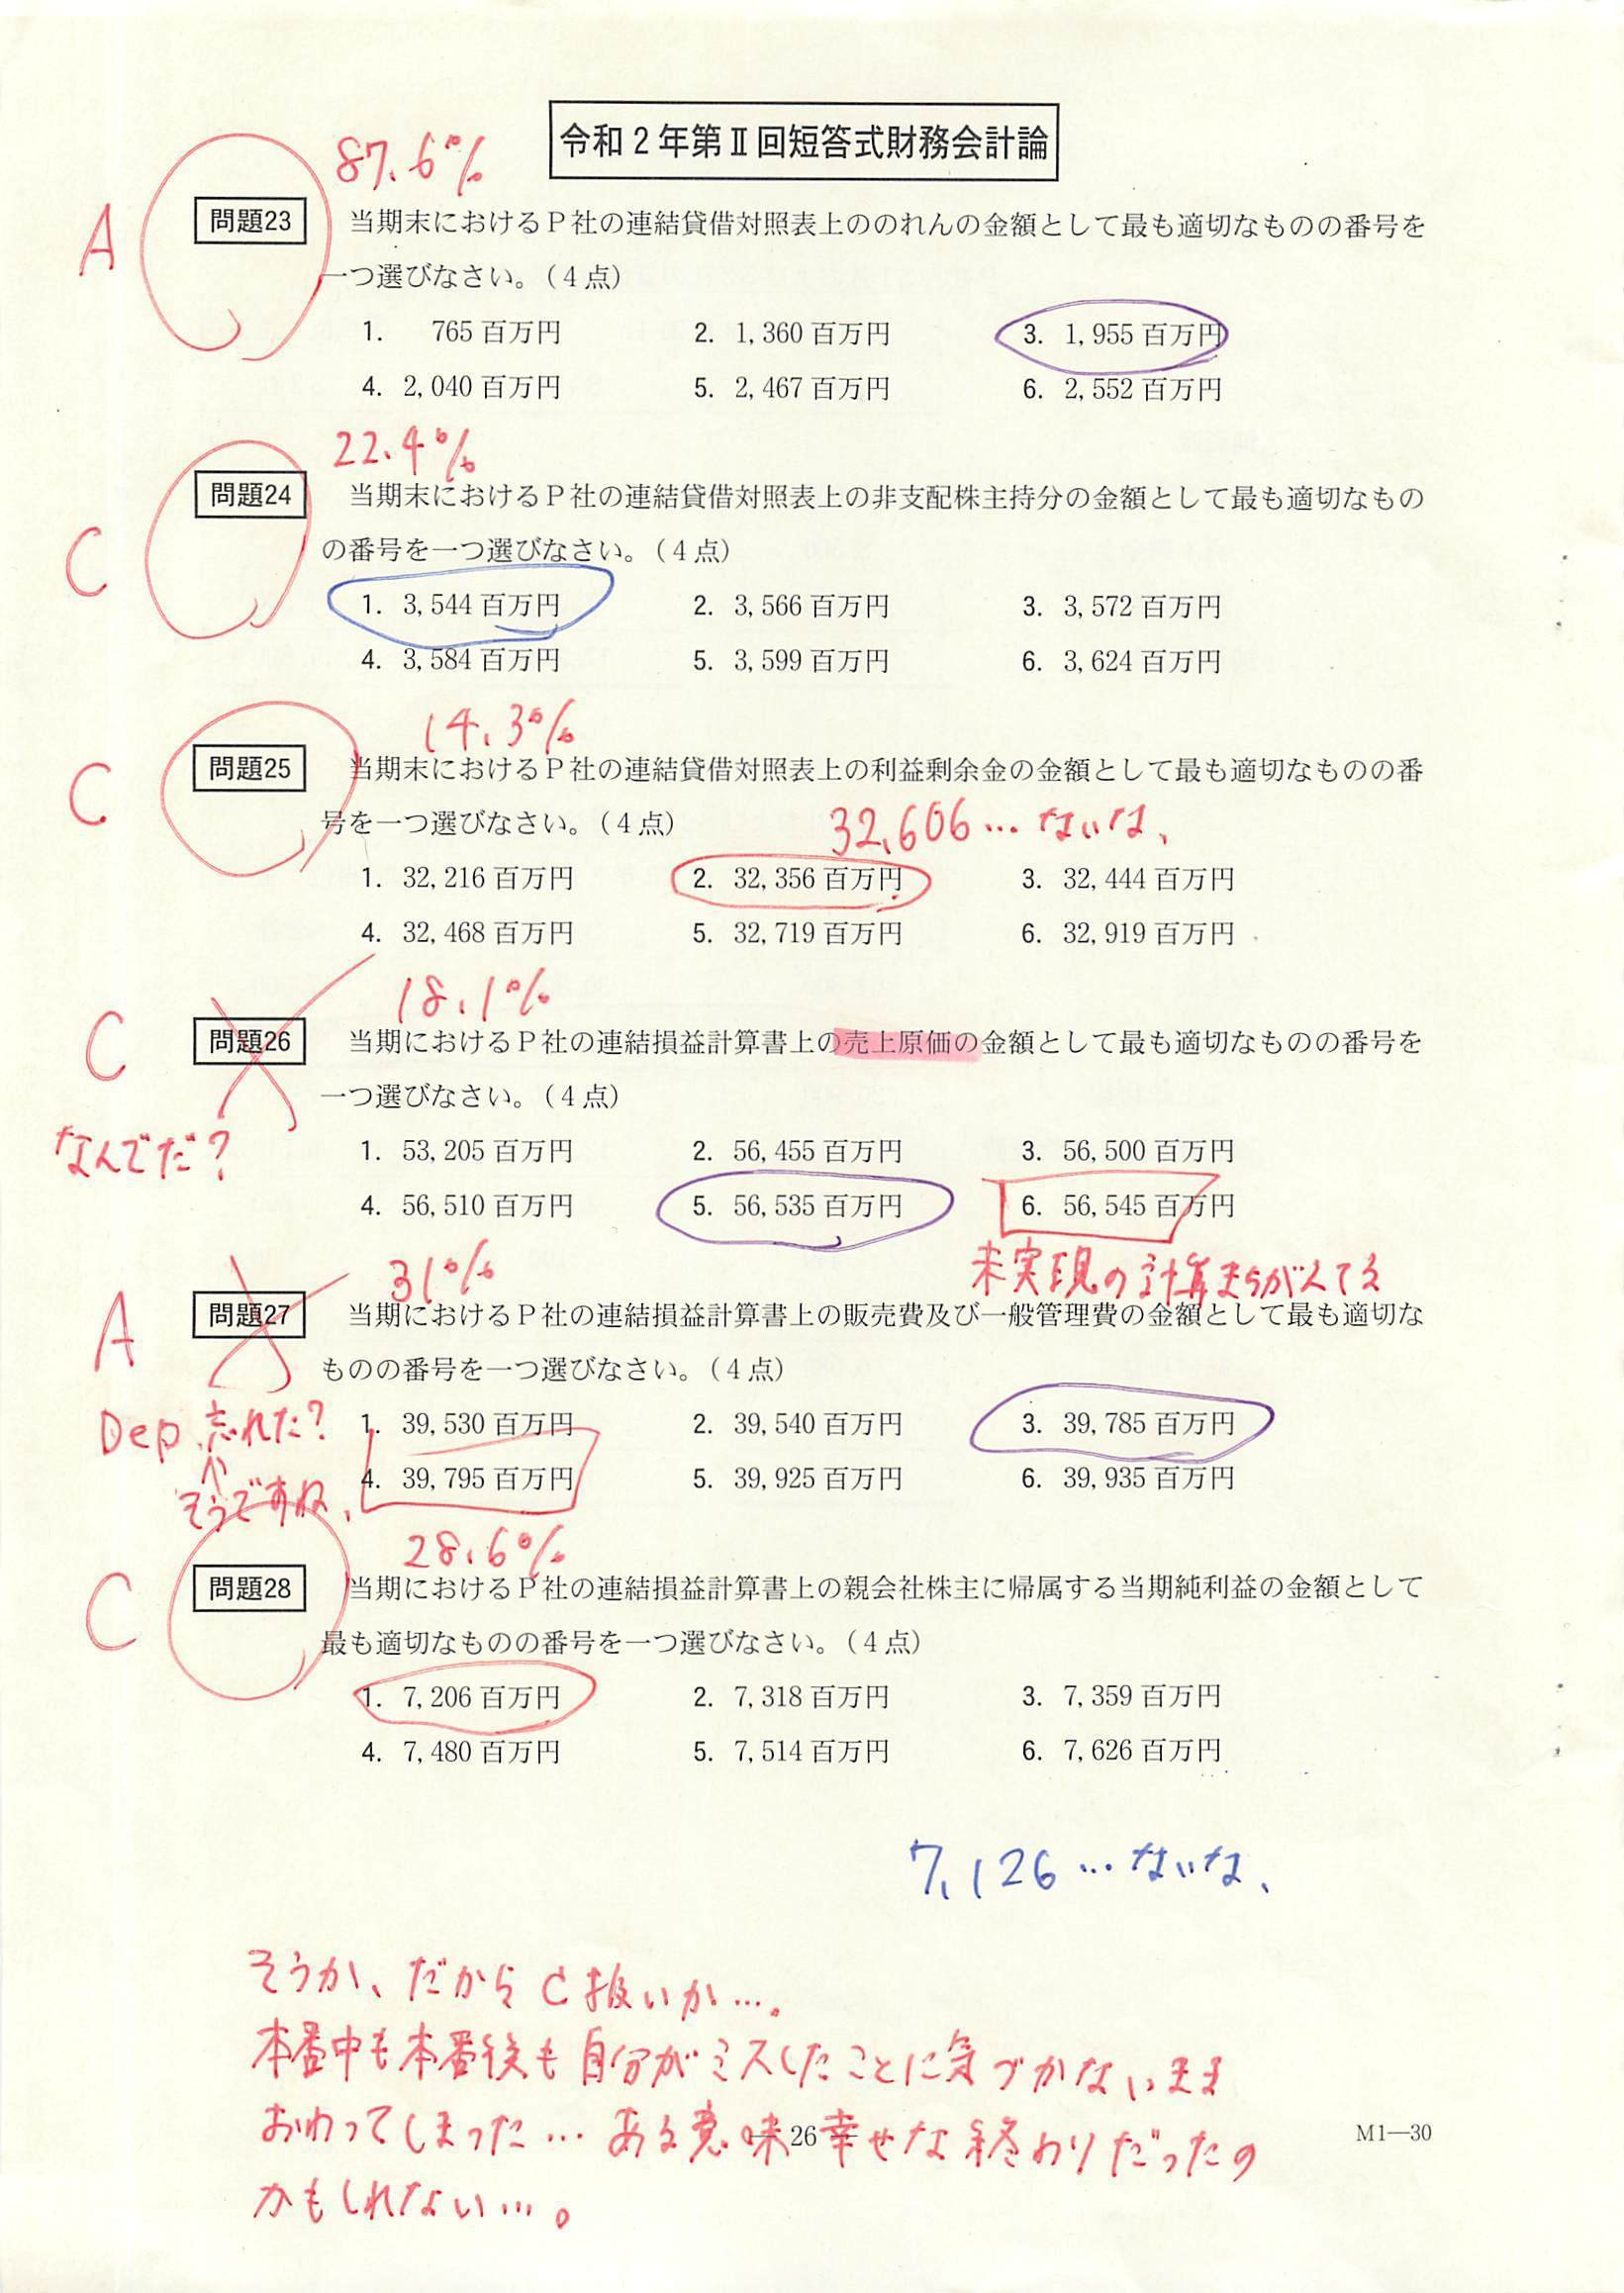 令和2年第Ⅱ回短答式財務会計論
87.6%
A
問題23 当期末におけるP社の連結貸借対照表上ののれんの金額として最も適切なものの番号を
一つ選びなさい。(4点)
1. 765百万円 2. 1,360百万円 3. 1,955百万円
4. 2,040百万円 5. 2,467百万円 6. 2,552百万円
22.4%
C
問題24 当期末におけるP社の連結貸借対照表上の非支配株主持分の金額として最も適切なもの
の番号を一つ選びなさい。(4点)
1. 3,544百万円 2. 3,566百万円 3. 3,572百万円
4. 3,584百万円 5. 3,599百万円 6. 3,624百万円
14.3%
C
問題25 当期末におけるP社の連結貸借対照表上の利益剰余金の金額として最も適切なものの番
号を一つ選びなさい。(4点) 32,606…ないな、
1. 32,216百万円 2. 32,356百万円 3. 32,444百万円
4. 32,468百万円 5. 32,719百万円 6. 32,919百万円
18.1%
C
問題26 当期におけるP社の連結損益計算書上の売上原価の金額として最も適切なものの番号を
一つ選びなさい。(4点)
なんでだ?
1. 53,205百万円 2. 56,455百万円 3. 56,500百万円
4. 56,510百万円 5. 56,535百万円 6. 56,545百万円
未実現の計算まちがえてる
31%
A
問題27 当期におけるP社の連結損益計算書上の販売費及び一般管理費の金額として最も適切な
ものの番号を一つ選びなさい。(4点)
Dep.忘れた?
1. 39,530百万円 2. 39,540百万円 3. 39,785百万円
4. 39,795百万円 5. 39,925百万円 6. 39,935百万円
そうですね、
28.6%
C
問題28 当期におけるP社の連結損益計算書上の親会社株主に帰属する当期純利益の金額として
最も適切なものの番号を一つ選びなさい。(4点)
1. 7,206百万円 2. 7,318百万円 3. 7,359百万円
4. 7,480百万円 5. 7,514百万円 6. 7,626百万円
7,126…ないな、
そうか、だからC扱いか…。
本番中も本番後も自分がミスしたことに気づかないまま
おわってしまった…ある意味幸せな終わりだったの
かもしれない…。
— 26 —
M1—30